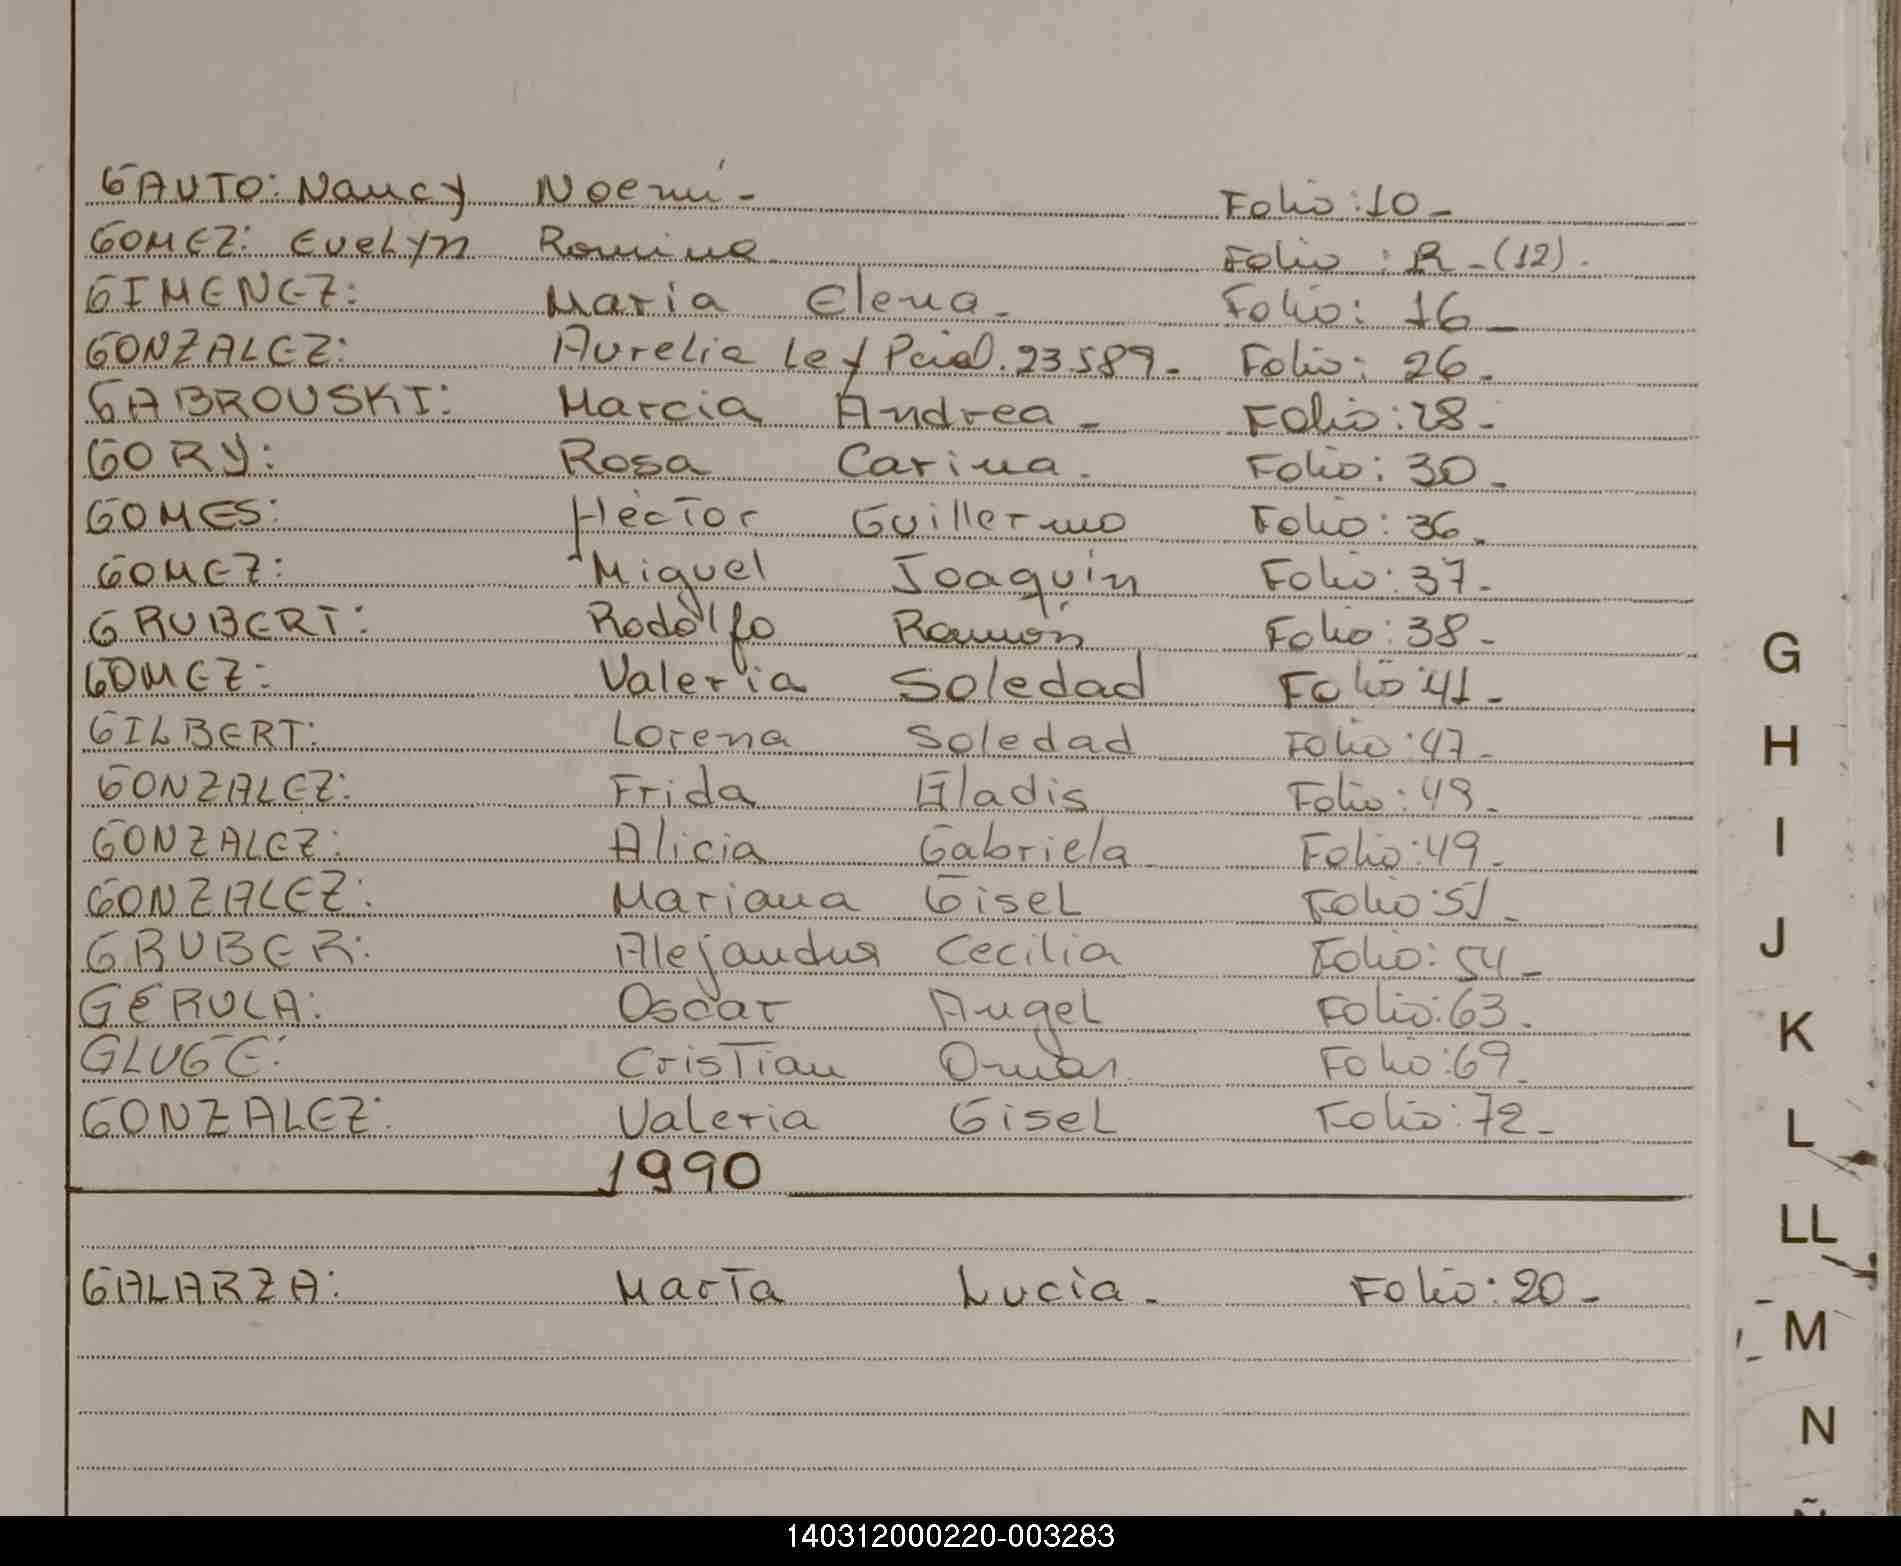 GAUTO: Nancy Noemí- Folio:10-
GOMEZ: Evelyn Romina Folio : R-(12).
GIMENEZ: Maria Elena- Folio: 16-
GONZALEZ: Aurelia Ley Pcial. 23.589- Folio: 26-
GABROUSKI: Marcia Andrea- Folio:28-
GORY: Rosa Carina. Folio: 30-
GOMES: Héctor Guillermo Folio: 36-
GOMEZ: Miguel Joaquín Folio: 37-
GRUBERT: Rodolfo Ramón Folio:38-
GOMEZ: Valeria Soledad Folio:41-
GILBERT: Lorena Soledad Folio:47-
GONZALEZ: Frida Gladis Folio:49-
GONZALEZ: Alicia Gabriela- Folio:49-
GONZALEZ: Mariana Gisel Folio 51-
GRUBER: Alejandra Cecilia Folio: 54-
GERULA: Oscar Angel Folio:63.
GLUGE: Cristian Omar. Folio:69-
GONZALEZ: Valeria Gisel Folio:72-
1990
GALARZA: Marta Lucia- Folio:20-
G
H
I
J
K
L
LL
M
N
Ñ
140312000220-003283